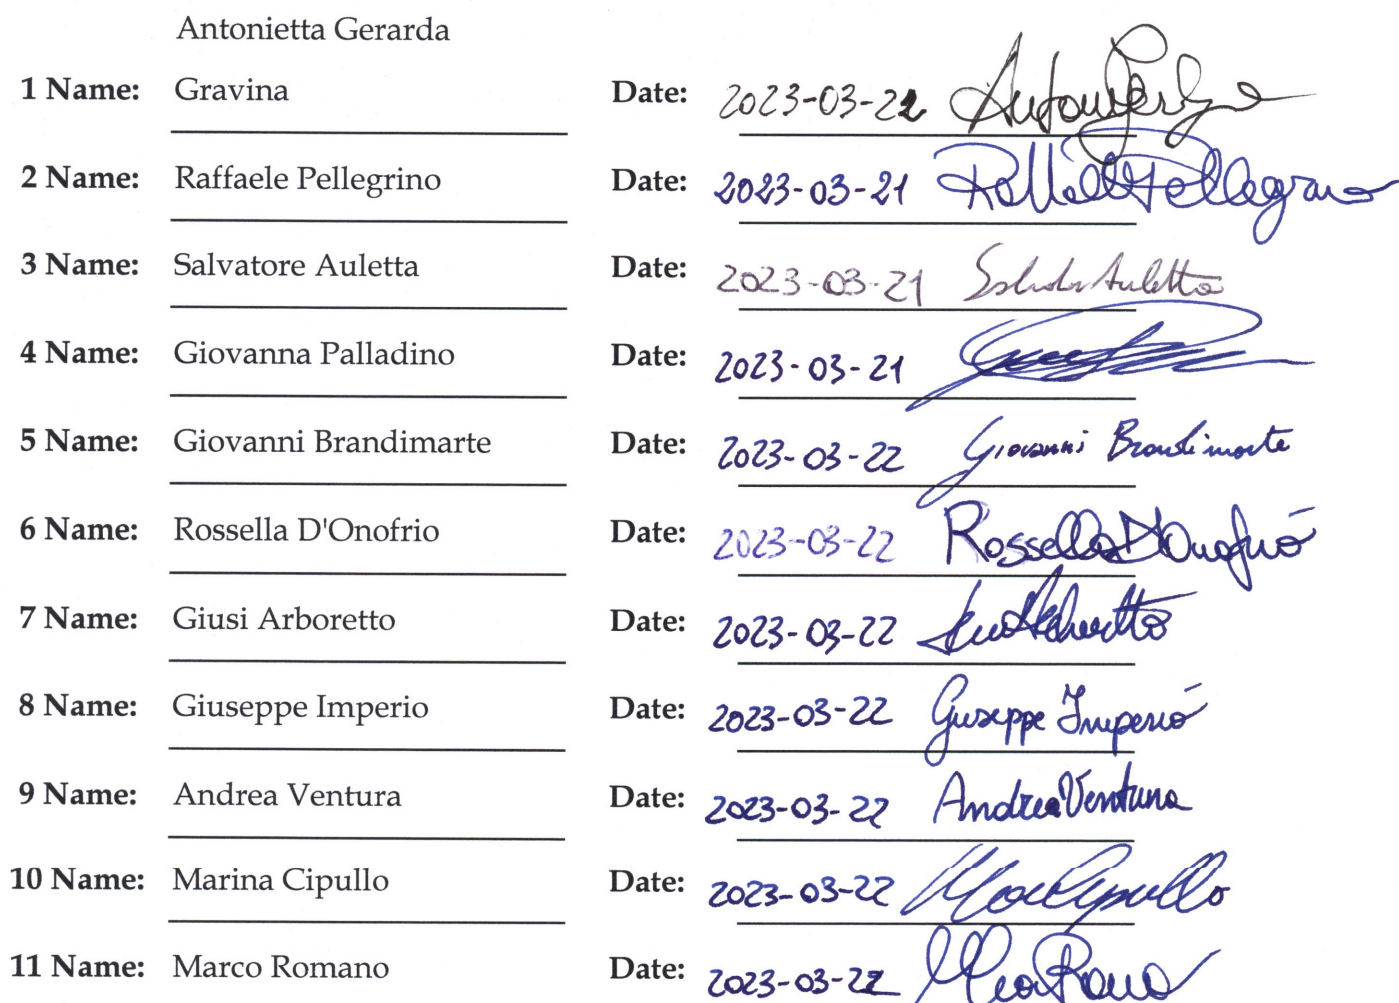 Antonietta Gerarda
1 Name: Gravina Date: 2023-03-22
2 Name: Raffaele Pellegrino Date: 2023-03-21 Raffaele Pellegrino
3 Name: Salvatore Auletta Date: 2023-03-21 Auletta
4 Name: Giovanna Palladino Date: 2023-03-21
5 Name: Giovanni Brandimarte Date: 2023-03-22 Giovanni Brandimarte
6 Name: Rossella D'Onofrio Date: 2023-03-22 Rossella D'Onofrio
7 Name: Giusi Arboretto Date: 2023-03-22
8 Name: Giuseppe Imperio Date: 2023-03-22 Giuseppe Imperio
9 Name: Andrea Ventura Date: 2023-03-22 Andrea Ventura
10 Name: Marina Cipullo Date: 2023-03-22
11 Name: Marco Romano Date: 2023-03-22